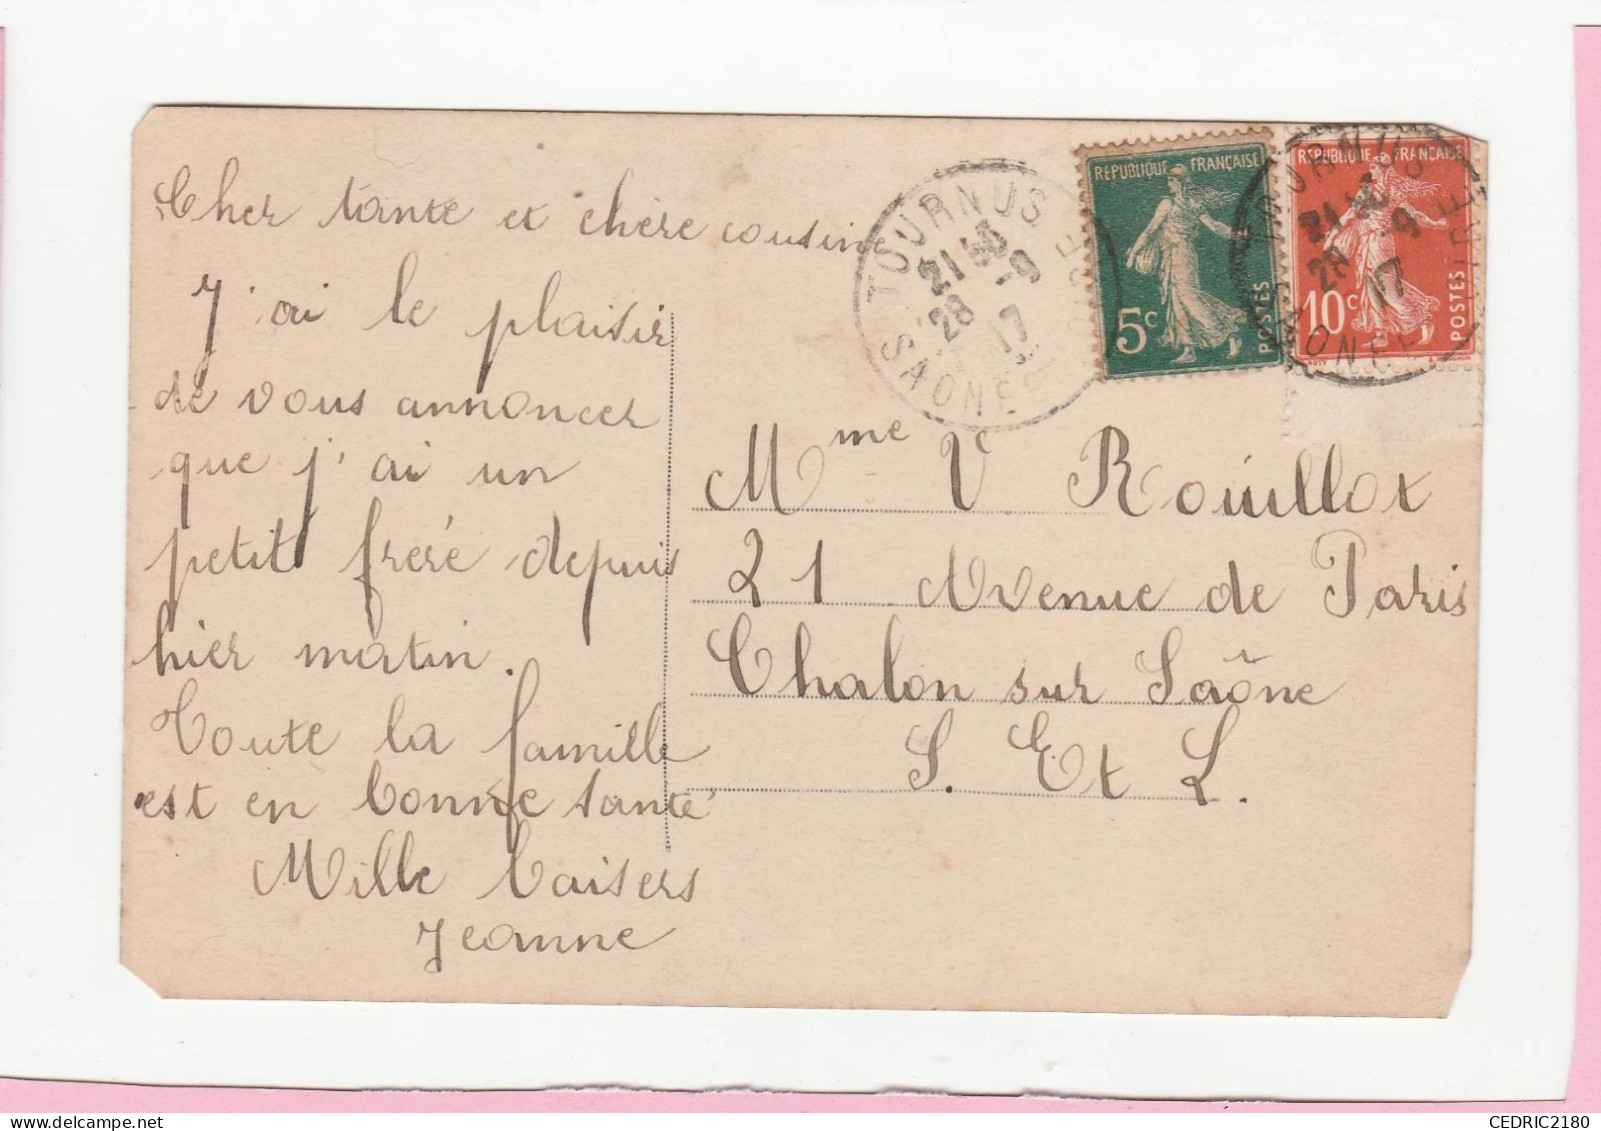 Cher tante et chère cousine
J'ai le plaisir
de vous annoncer
que j'ai un
petit freré depuis
hier matin.
Toute la famille
est en bonne santé
Mille baisers
Jeanne
TOURNUS
21 30
28 -9
17
SAONE
LOIRE
REPUBLIQUE FRANÇAISE
5c
POSTES
REPUBLIQUE FRANÇAISE
10c
POSTES
TOURNUS
21 30
28 -9
17
SAONE
LOIRE
Mme V. Rouillot
21 Avenue de Paris
Chalon sur Saône
S. Et L.
CEDRIC2180